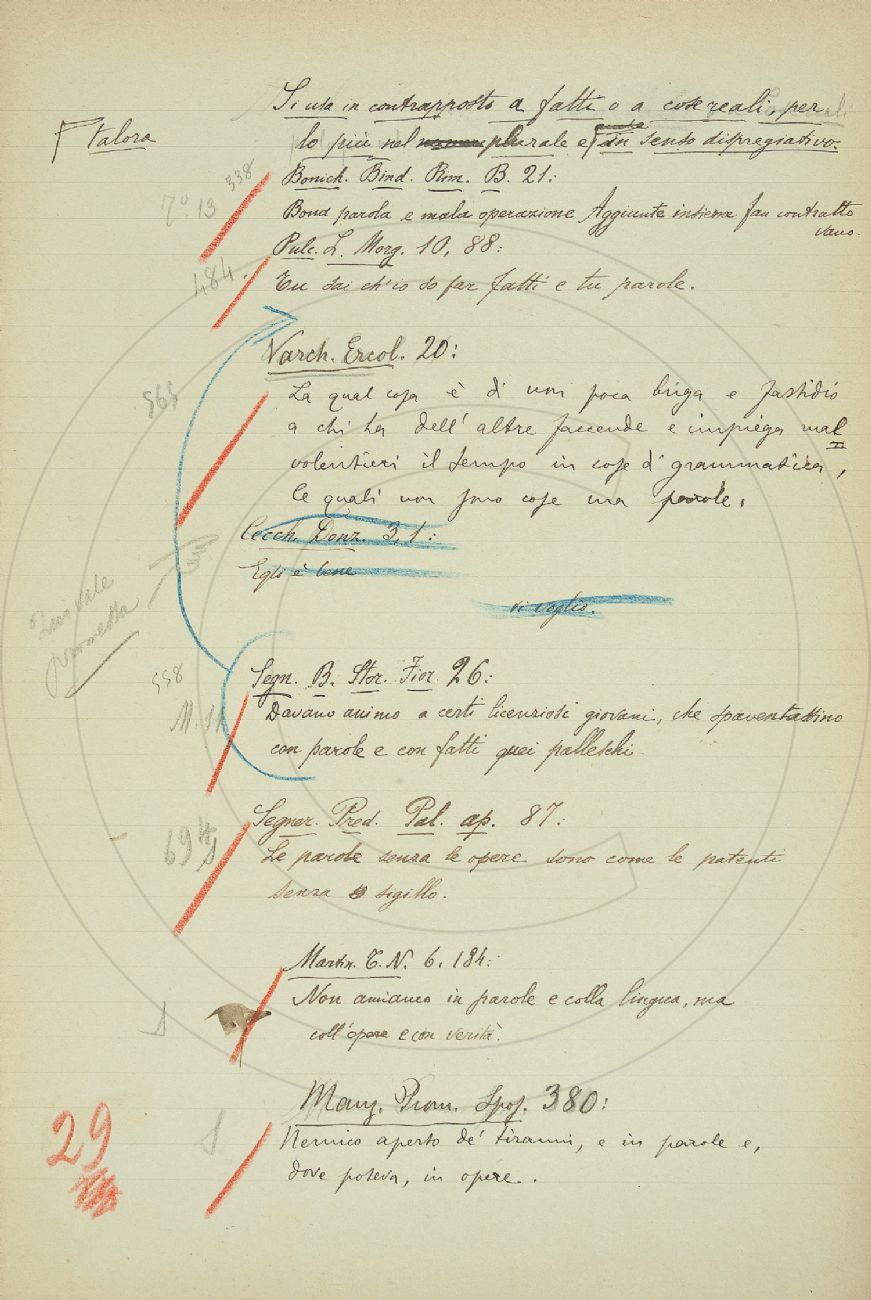 Si usa in contrapposto a fatti o a cose reali, per
Talora
lo più nel plurale e anche in senso dispregiativo.
338
Bonich. Bind. Rim. B. 21:
7° 13
Bona parola e mala operazione Aggiunte insieme fan contratto
vano.
Pulc. L. Morg. 10, 88:
484.
Tu sai ch'io so far fatti e tu parole.
Varch. Ercol. 20:
565
La qual cosa è di non poca briga e fastidio
a chi ha dell'altre faccende e impiega mal
volentieri il tempo in cose di grammatica,
le quali non sono cose ma parole.
Cecch. Donz. 3, 1:
Egli è bene
vi voglio.
Qui vale
promessa
558
Segn. B. Stor. Fior. 26:
M. 11
Davano animo a certi licenziosi giovani, che spaventassino
con parole e con fatti quei palleschi
Segner. Pred. Pal. ap. 87:
694
Le parole senza le opere sono come le patenti
senza sigillo.
Martin. T. N. 6. 184:
Non amiamo in parole e colla lingua, ma
coll'opere e con verità.
Manz. Prom. Spos. 380:
29
Nemico aperto de' tiranni, e in parole e,
dove poteva, in opere.